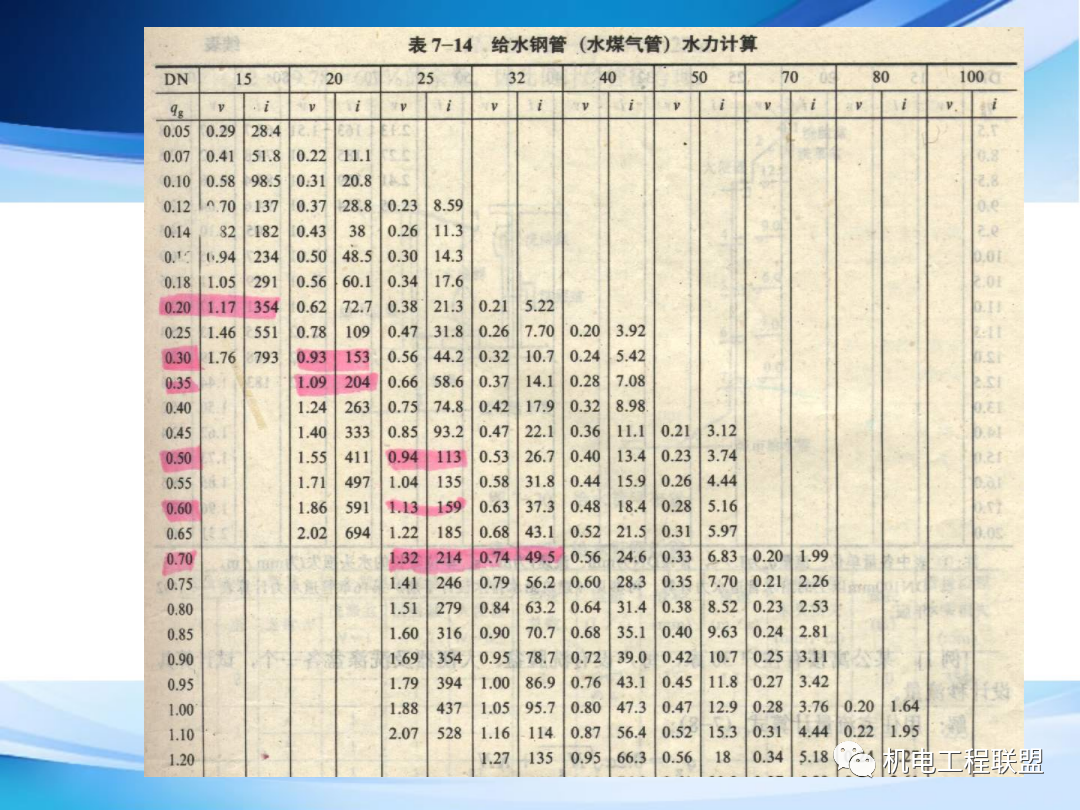 表7-14 给水钢管（水煤气管）水力计算
DN 15 20 25 32 40 50 70 80 100
qg v i v i v i v i v i v i v i v i v. i
0.05 0.29 28.4
0.07 0.41 51.8 0.22 11.1
0.10 0.58 98.5 0.31 20.8
0.12 .70 137 0.37 28.8 0.23 8.59
0.14 82 182 0.43 38 0.26 11.3
0.94 234 0.50 48.5 0.30 14.3
0.18 1.05 291 0.56 60.1 0.34 17.6
0.20 1.17 354 0.62 72.7 0.38 21.3 0.21 5.22
0.25 1.46 551 0.78 109 0.47 31.8 0.26 7.70 0.20 3.92
0.30 1.76 793 0.93 153 0.56 44.2 0.32 10.7 0.24 5.42
0.35 1.09 204 0.66 58.6 0.37 14.1 0.28 7.08
0.40 1.24 263 0.75 74.8 0.42 17.9 0.32 8.98
0.45 1.40 333 0.85 93.2 0.47 22.1 0.36 11.1 0.21 3.12
0.50 1.55 411 0.94 113 0.53 26.7 0.40 13.4 0.23 3.74
0.55 1.71 497 1.04 135 0.58 31.8 0.44 15.9 0.26 4.44
0.60 1.86 591 1.13 159 0.63 37.3 0.48 18.4 0.28 5.16
0.65 2.02 694 1.22 185 0.68 43.1 0.52 21.5 0.31 5.97
0.70 1.32 214 0.74 49.5 0.56 24.6 0.33 6.83 0.20 1.99
0.75 1.41 246 0.79 56.2 0.60 28.3 0.35 7.70 0.21 2.26
0.80 1.51 279 0.84 63.2 0.64 31.4 0.38 8.52 0.23 2.53
0.85 1.60 316 0.90 70.7 0.68 35.1 0.40 9.63 0.24 2.81
0.90 1.69 354 0.95 78.7 0.72 39.0 0.42 10.7 0.25 3.11
0.95 1.79 394 1.00 86.9 0.76 43.1 0.45 11.8 0.27 3.42
1.00 1.88 437 1.05 95.7 0.80 47.3 0.47 12.9 0.28 3.76 0.20 1.64
1.10 2.07 528 1.16 114 0.87 56.4 0.52 15.3 0.31 4.44 0.22 1.95
1.20 1.27 135 0.95 66.3 0.56 18 0.34 5.18
机电工程联盟